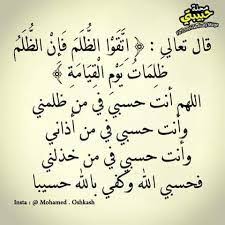 مجلة
حبيبتي
قال تعالي : ﴿ اتَّقُوْا الظُّلَمَ فَإِنْ الظُّلَمُ
ظلِمَاتُ يَوْمِ الْقِيَامَةِ ﴾
اللهم أنت حسبي في من ظلمني
وأنت حسبي في من أذاني
وأنت حسبي في من خذلني
فحسبي الله وكفي بالله حسيبا
Insta : @ Mohamed . Oshkash